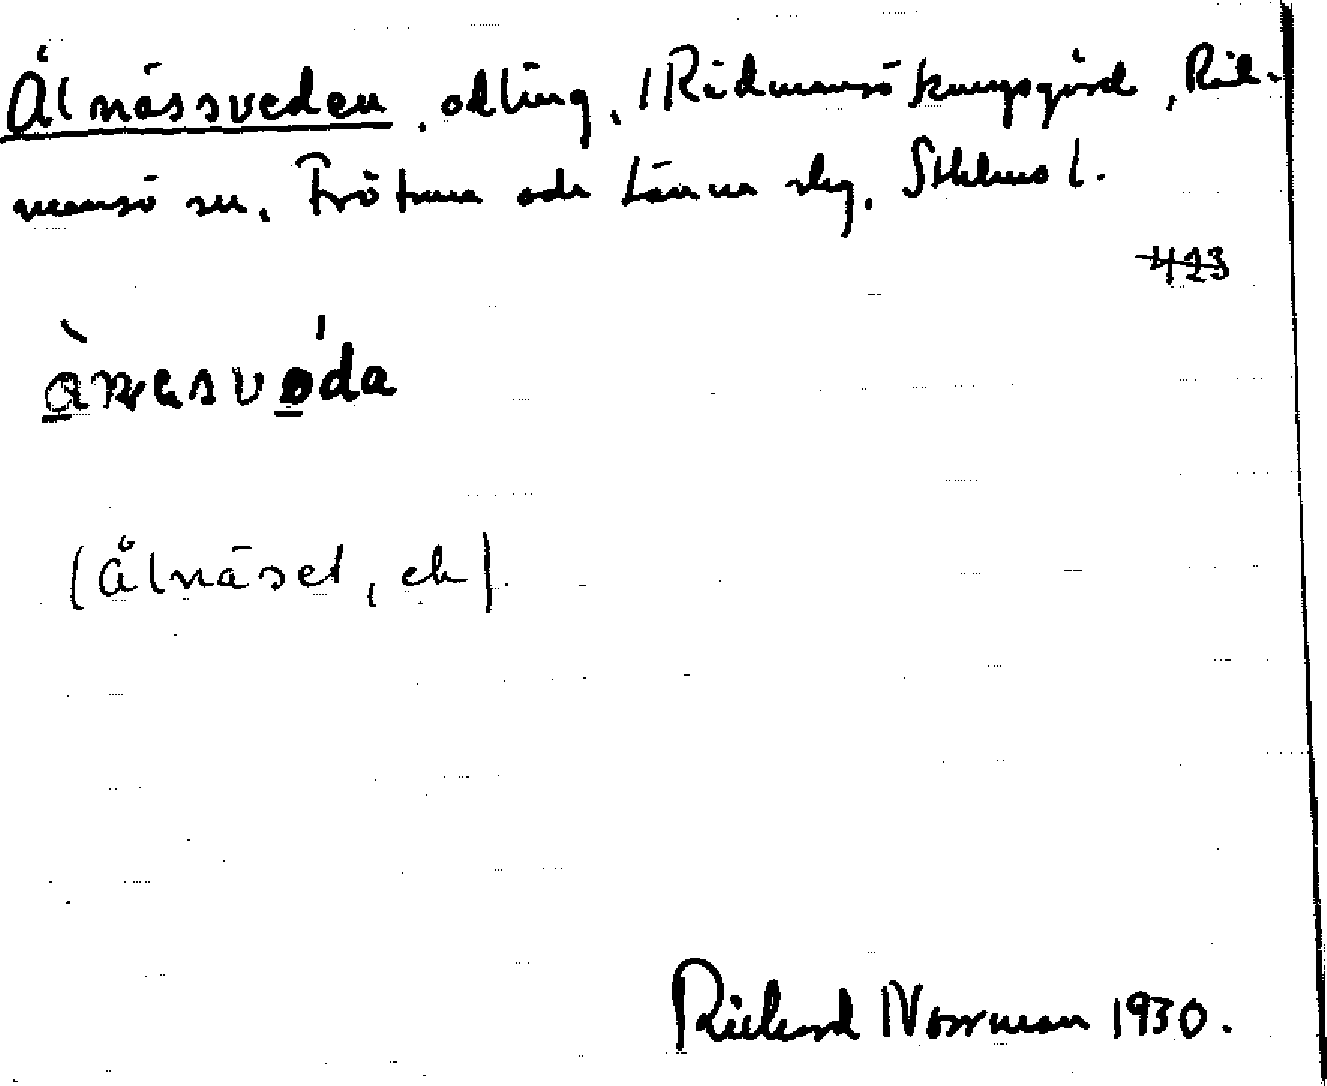 Ålnässveden, odling, Rådmansö kungsgård, Råd-
mansö sn, Frötuna och Länna skg, Sthlms l.
423
(Ålnäset, ek)
Richard Norrman 1930.